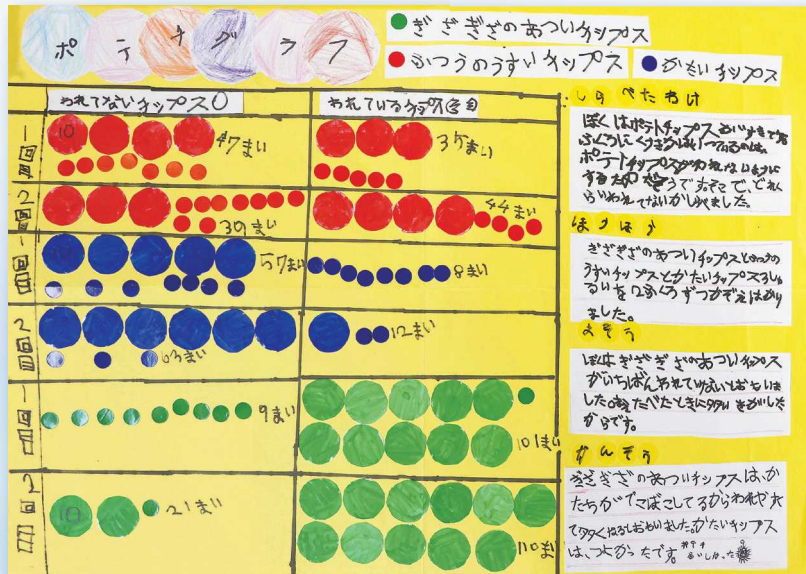 ポテチグラフ
ぎざぎざのあついチップス
ふつうのうすいチップス
かたいチップス
われてないチップス
われているチップス
1回目
10
47まい
35まい
2回目
39まい
44まい
1回目
57まい
8まい
2回目
63まい
12まい
1回目
9まい
101まい
2回目
10
21まい
110まい
しらべたわけ
ぼくはポテトチップスがいすきです
ふくろに
ポテトチップスがわれないように
するため そうです。そこで、どれ
くらいわれてないかしらべました。
ほうほう
ぎざぎざのあついチップスとふつうの
うすいチップスとかたいチップス3しゅ
るいを2ふくろずつかぞえはかり
ました。
よそう
ぼくはぎざぎざのあついチップス
がいちばんわれていないとおもいま
した。まえたべたときに
からです。
かんそう
ぎざぎざのあついチップスは、か
たちがでこぼこしてるからわれや
かたいチップス
は、つよかったです。